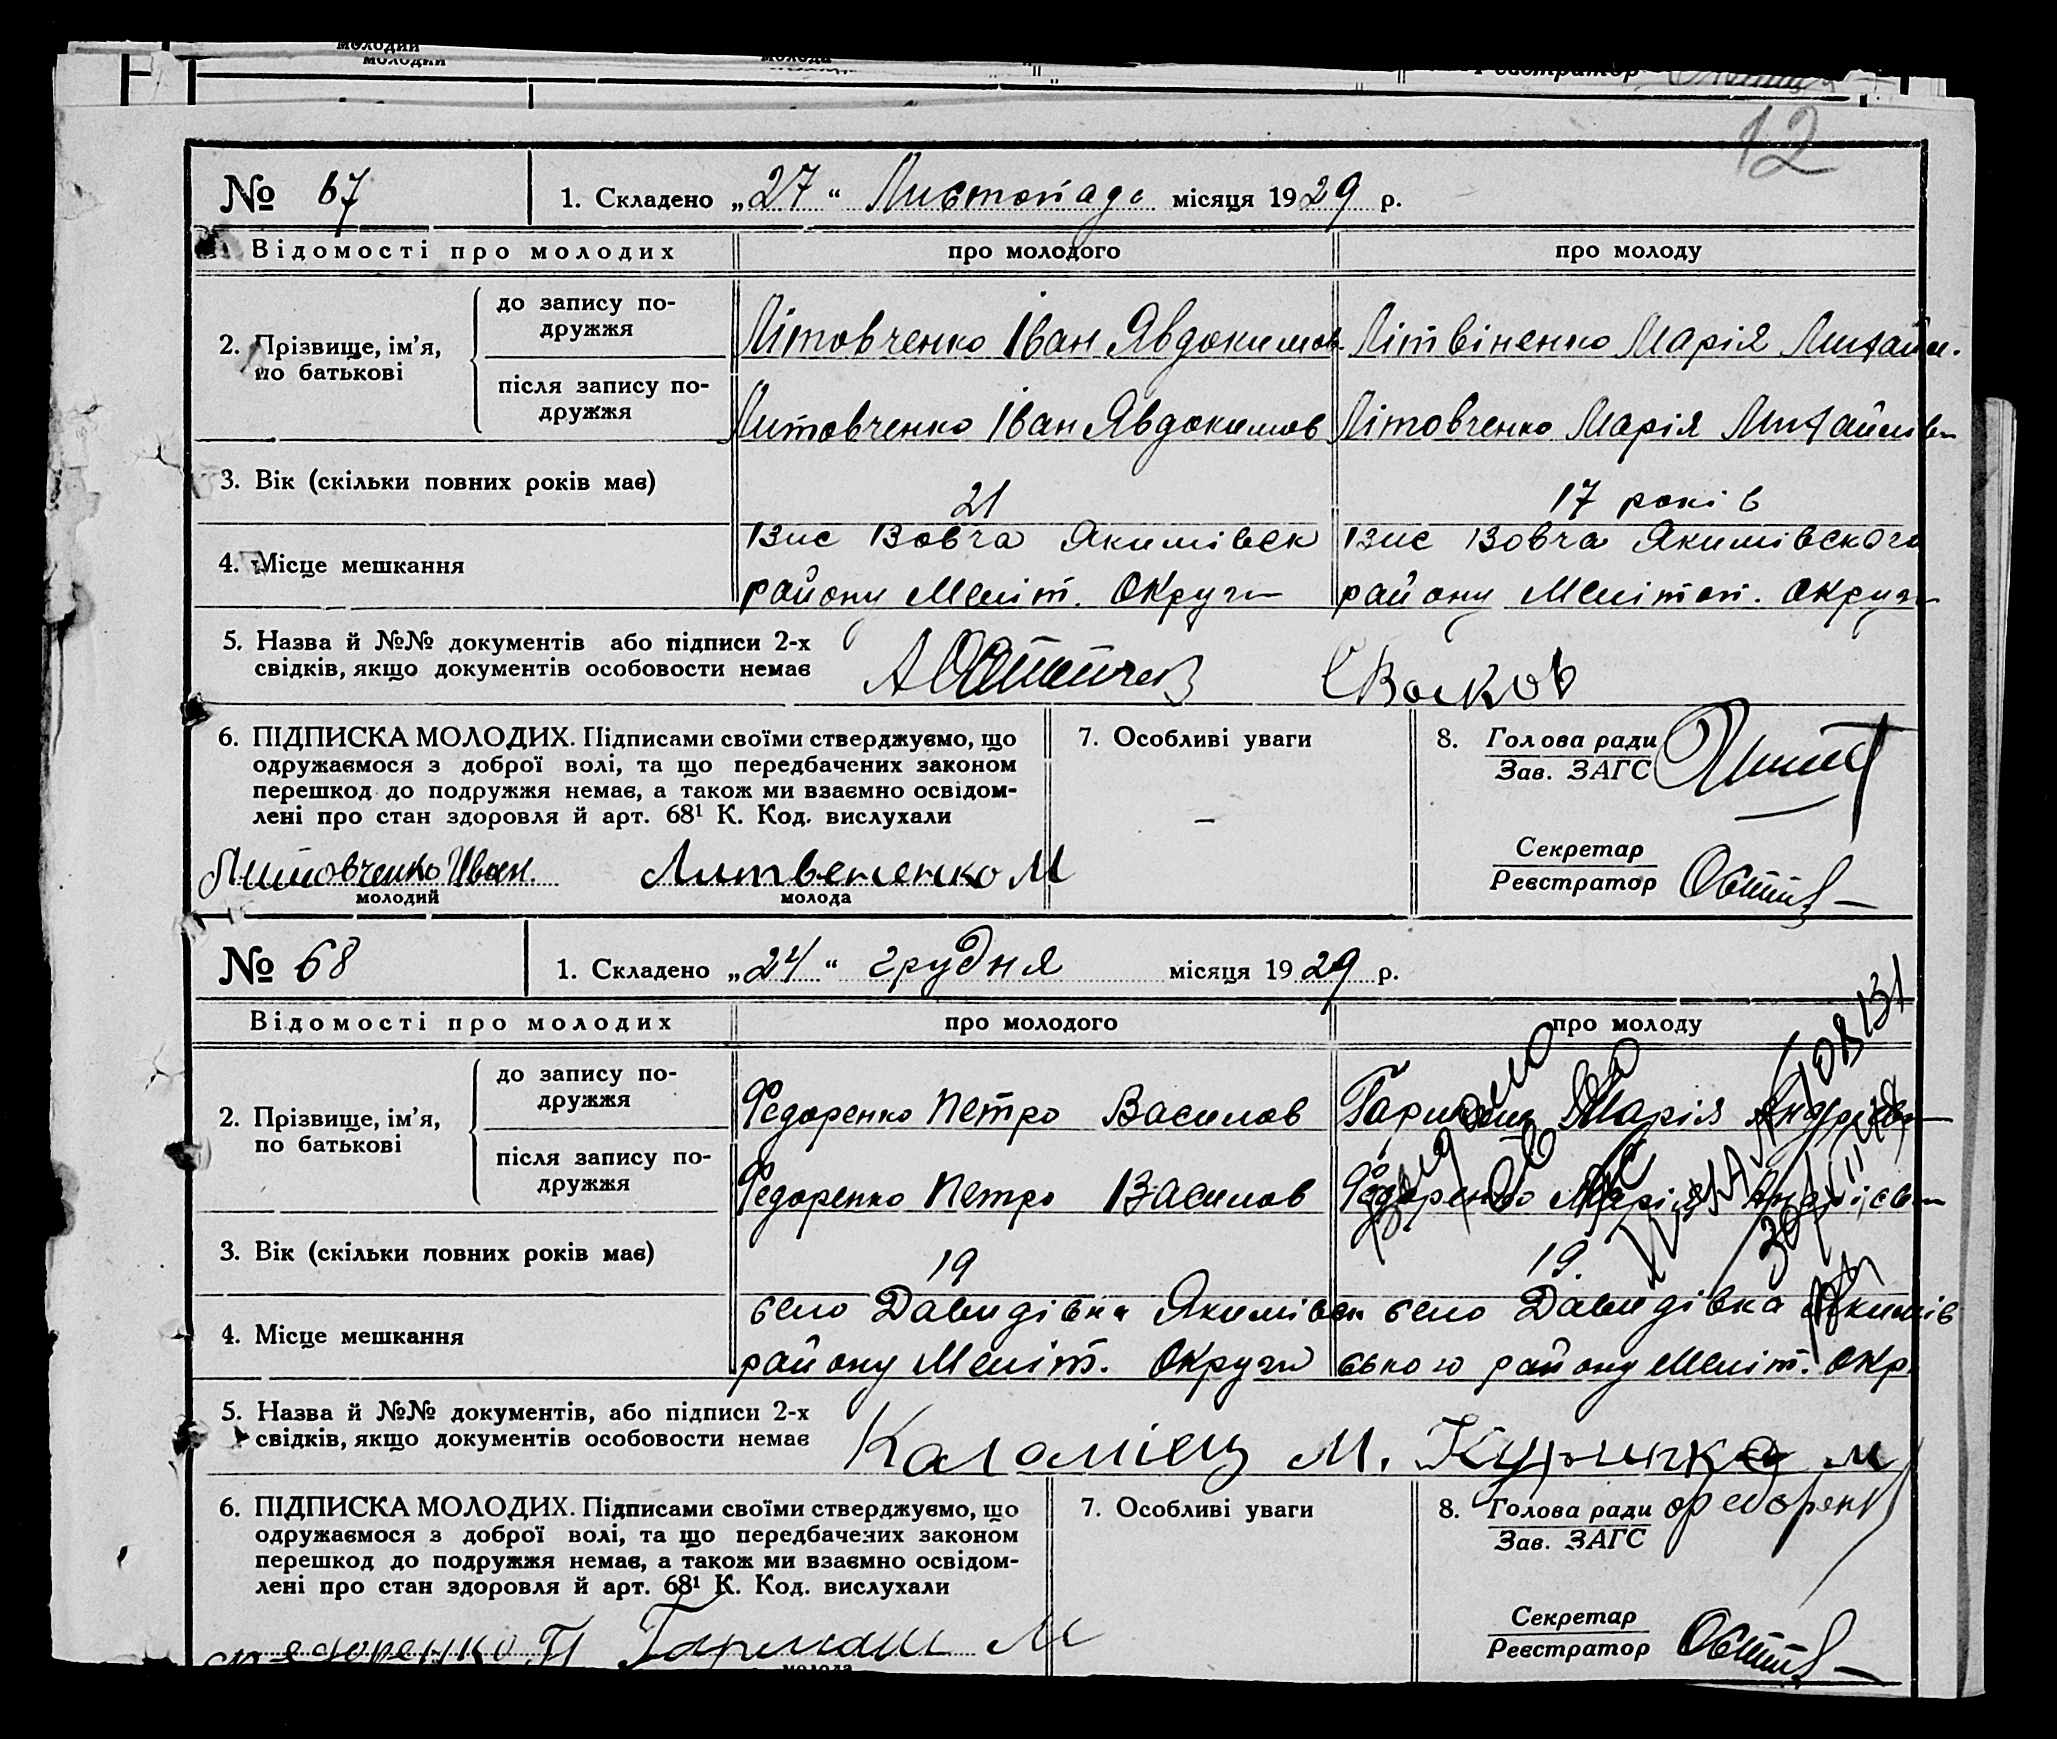 молодий
молодий
молода
Реєстратор
12
№ 67
1. Складено „27“ Листопада місяця 1929 р.
Відомості про молодих
про молодого
про молоду
2. Прізвище, ім’я, по батькові
до запису подружжя
Літовченко Іван Явдокимов
Літвіненко Марія Михайл.
після запису подружжя
Литовченко Іван Явдокимов
Літовченко Марія Михайлівн
3. Вік (скільки повних років має)
21
17 років
4. Місце мешкання
Вовча Якимівск
району Меліт. Округи
Вовча Якимівского
району Мелітоп. Округи
5. Назва й №№ документів або підписи 2-х
свідків, якщо документів особовости немає
Волков
6. ПІДПИСКА МОЛОДИХ. Підписами своїми стверджуємо, що
одружаємося з доброї волі, та що передбачених законом
перешкод до подружжя немає, а також ми взаємно освідом-
лені про стан здоровля й арт. 68¹ К. Код. вислухали
Литовченко Иван.
молодий
Литвененко М
молода
7. Особливі уваги
–
8. Голова ради
Зав. ЗАГС
Секретар
Реєстратор
№ 68
1. Складено „24“ грудня місяця 1929 р.
Відомості про молодих
про молодого
про молоду
2. Прізвище, ім’я, по батькові
до запису подружжя
Федоренко Петро Василов
Гармаш Марія Андріївн
після запису подружжя
Федоренко Петро Василов
Федоренко Марія Андрієвн
3. Вік (скільки повних років має)
19
19.
4. Місце мешкання
село Давидівка Якимівск
району Меліт. Округи
село Давидівка Якимів
ського району Меліт. Окр.
5. Назва й №№ документів, або підписи 2-х
свідків, якщо документів особовости немає
Коломієц М.
6. ПІДПИСКА МОЛОДИХ. Підписами своїми стверджуємо, що
одружаємося з доброї волі, та що передбачених законом
перешкод до подружжя немає, а також ми взаємно освідом-
лені про стан здоровля й арт. 68¹ К. Код. вислухали
Федоренко П
Гармаш М
молода
7. Особливі уваги
8. Голова ради
Зав. ЗАГС
Федоренко
Секретар
Реєстратор